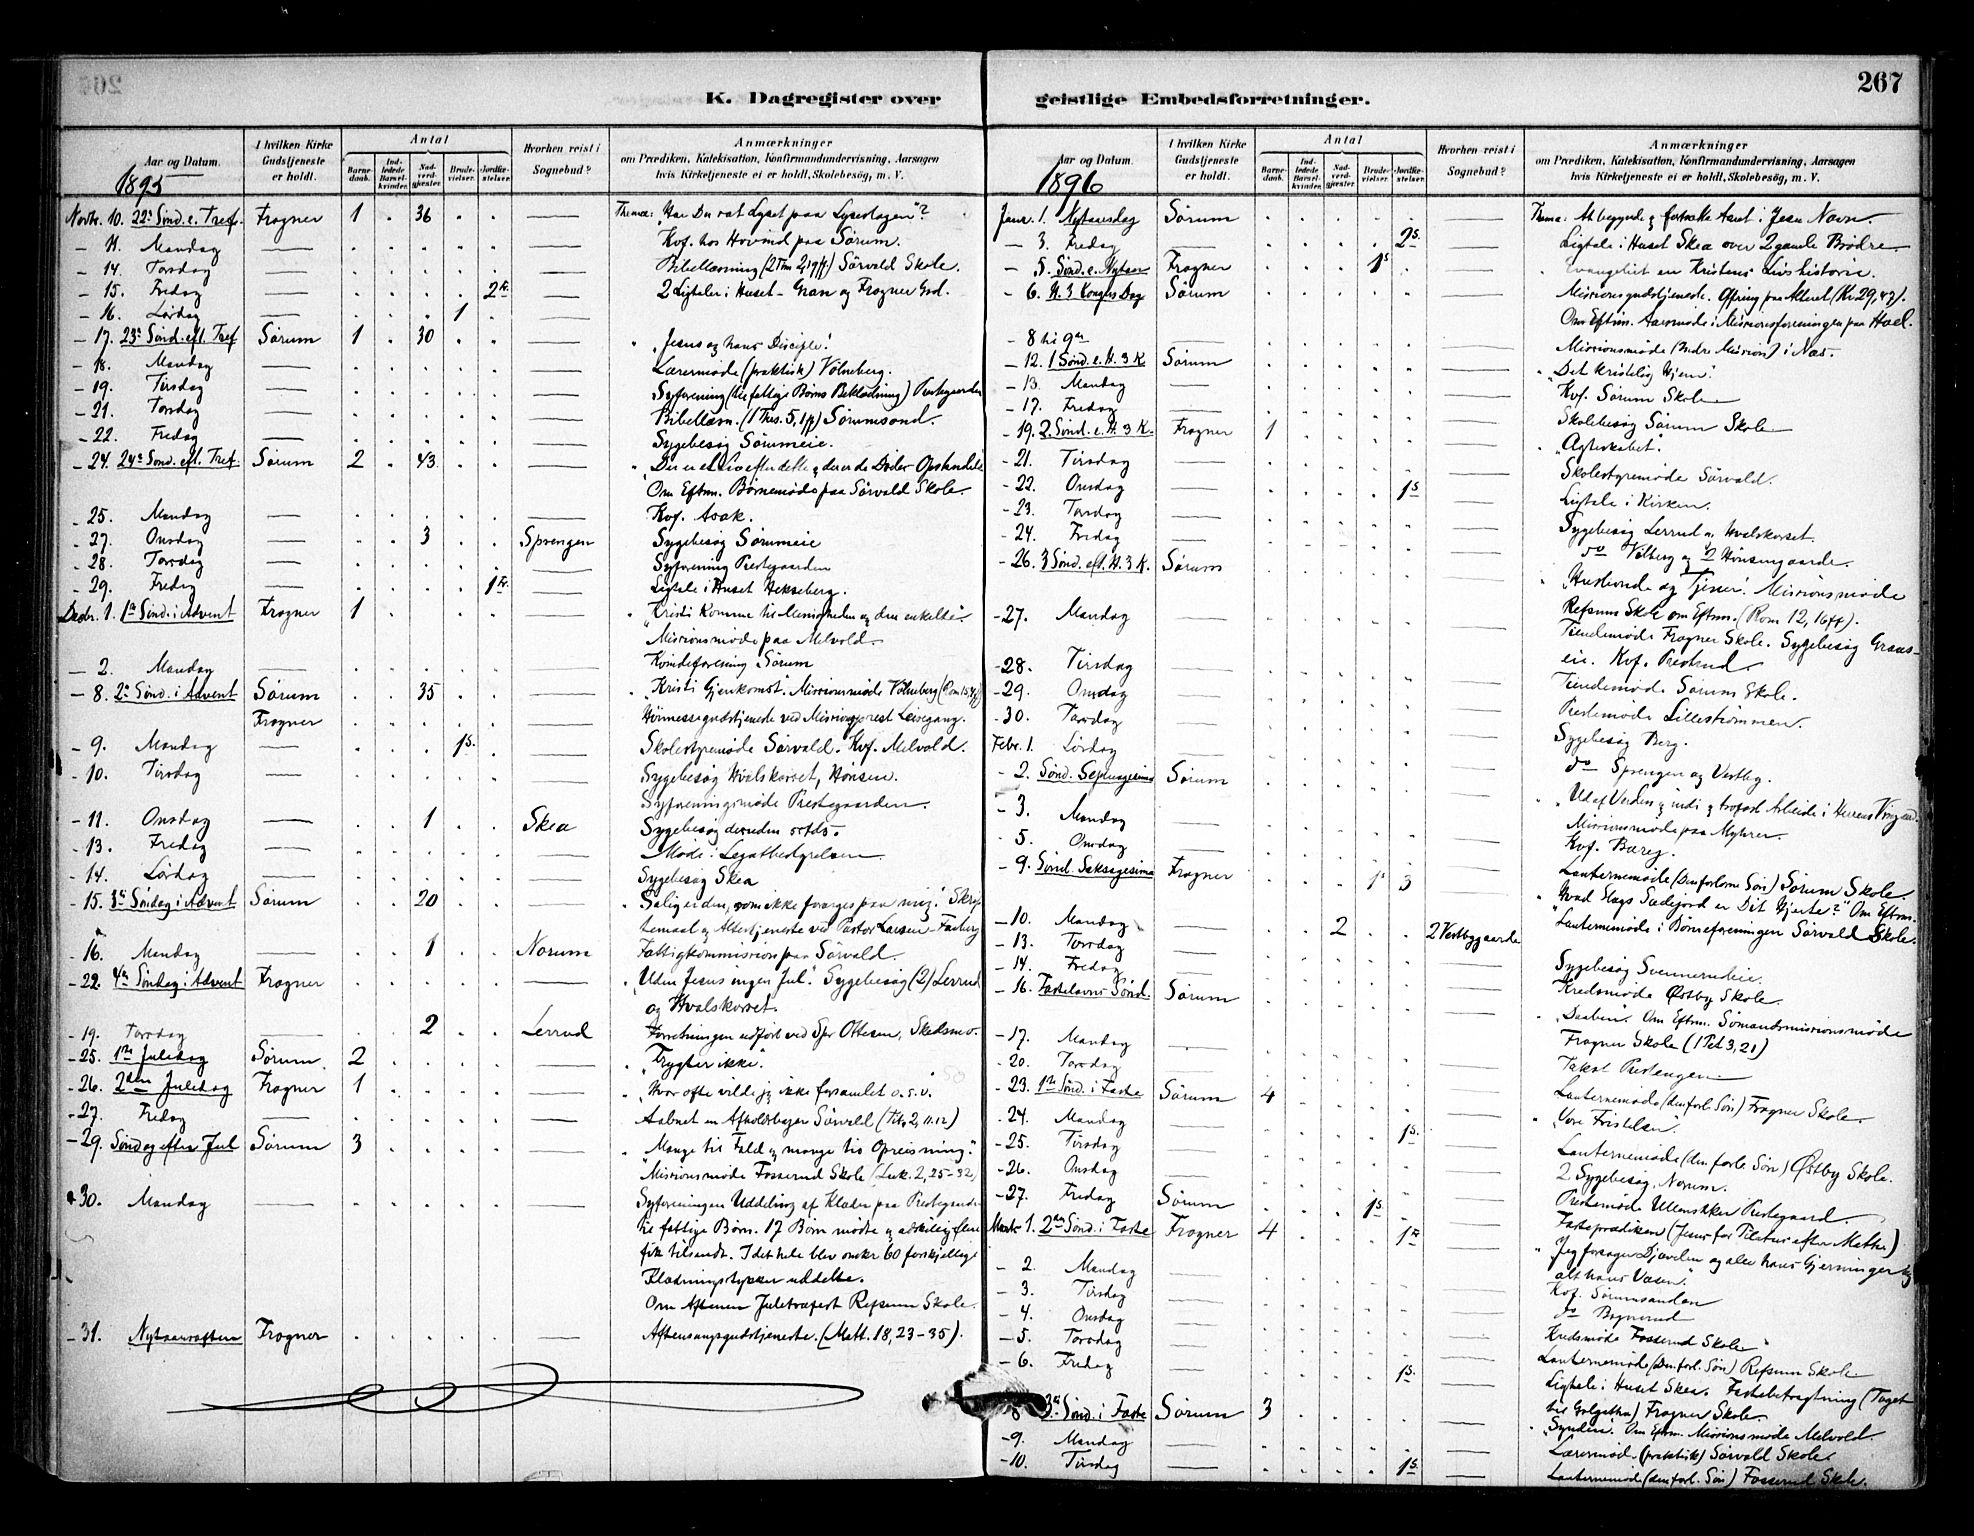 267
K. Dagregister over geistlige Embedsforretninger.
Aar og Datum.
I hvilken Kirke Gudstjeneste er holdt.
Antal
Barnedaab.
Indledede Barselkvinder.
Nadverdgjester.
Brudevielser.
Jordfæstelser.
Hvorhen reist i Sognebud?
Anmærkninger
om Prædiken, Katekisation, Konfirmandundervisning, Aarsagen
hvis Kirketjeneste ei er holdt, Skolebesøg, m. V.
1895
Novbr. 10. 22de Sønd. e. Tref. Frogner 1 . 36 . . Thema: "Har Du rat Lyset paa Lysestagen"?
- 11. Mandag Kvf. hos Hovind paa Sørum.
- 14. Torsdag Bibellæsning (2 Tim 2,19ff) Sørvald Skole.
- 15. Fredag 2 Ligtaler i Huset - Gran og Frogner Grd.
- 16. Lørdag 1
- 17. 23de Sønd. eft. Tref. Sørum 1 . 30 . . " "Jesus og hans Disciple".
- 18. Mandag Læremøde (praktisk) Vølneberg.
- 19. Tirsdag Syforening (til fattige Børns Beklædning) Prestegaarden
- 21. Torsdag Bibellæsn. (1 Thes. 5, 1ff) Sørumsand.
- 22. Fredag Sygebesøg Sørumeie.
- 24. 24de Sønd. eft. Tref. Sørum 2 . 43 . . " Der er et Liv efter dette og der er de Dødes Opstandelse
Om Eftm. Børnemøde paa Sørvald Skole.
- 25. Mandag Kvf. Asak.
- 27. Onsdag 3 Sprengen Sygebesøg Sørumeie
- 28. Torsdag Syforening Prestegaarden
- 29. Fredag Ligtale i Huset Hekseberg.
Decbr. 1. 1ste Sønd. i Advent Frogner 1 " "Kristi Komme til Menigheden og den enkelte".
Missionsmøde paa Melvold.
- 2. Mandag Kvindeforening Sørum
- 8. 2den Sønd. i Advent Sørum . . 35 " "Kristi Gjenkomst". Missionsmøde Vølneberg
Frogner Høimessegudstjeneste ved Missionsprest
- 9. Mandag 1 S. Skolestyremøde Sørvald. Kvf. Melvold.
- 10. Tirsdag Sygebesøg Hvalskorset, Hønsen.
Syforeningsmøde Prestegaarden.
- 11. Onsdag 1 Skea Sygebesøg
- 13. Fredag Møde i Legatbestyrelsen
- 14. Lørdag Sygebesøg Skea
- 15. 3die Søndag i Advent Sørum . . 20 " "Salig er den, som ikke forarges paa mig". Skrif-
temaal og Altertjeneste ved Pastor Larsen - Faaberg
16. Mandag 1 Norum Fattigkommission paa Sørvald.
- 22. 4de Søndag i Advent Frogner " "Uden Jesus ingen Jul". Sygebesøg (2) Lerrud
og Hvalskorset.
- 19. Torsdag 2 Lerrud Forretningen udført ved Spr Ottesen, Skedsmo.
- 25. 1ste Juledag Sørum 2 " "Frygter ikke".
- 26. 2den Juledag Frogner 1 " "Hvor ofte vilde jeg ikke forsamlet o.s.v."
- 27. Fredag Aabnet en Afholdsbazar Sørvald (Tit. 2, 11.12)
- 29. Søndag efter Jul Sørum 3 " "Mange til Fald og mange til Opreisning".
Missionsmøde Fosserud Skole (Luk. 2, 25-32)
30. Mandag Syforeningens Uddeling af Klæder paa Prestegaarden
til fattige Børn. 17 Børn mødte og adskillig flere
fik tilsendt. I det hele blev omkr 60 forskjellige
Klædningsstykker uddelte.
Om Aftenen Juletræfest Refsum Skole.
- 31. Nytaarsaften Frogner Aftensangsgudstjeneste. (Matt. 18, 23-35).
Aar og Datum.
I hvilken Kirke Gudstjeneste er holdt.
Antal
Barnedaab.
Indledede Barselkvinder.
Nadverdgjester.
Brudevielser.
Jordfæstelser.
Hvorhen reist i Sognebud?
Anmærkninger
om Prædiken, Katekisation, Konfirmandundervisning, Aarsagen
hvis Kirketjeneste ei er holdt, Skolebesøg, m. V.
1896
Janr. 1. Nytaarsdag Sørum Thema: At begynde og fortsætte Aaret i Jesu Navn.
- 3. Fredag 2 S. Ligtale i Huset Skea over 2 gamle Brødre
- 5. Sønd. e. Nytaar Frogner 1 S " Evangeliet en Kristens Livshistorie.
- 6. H. 3 Kongers Dag Sørum Missionsgudstjeneste. Ofring paa Alteret (Kr 29,43).
Om Eftm. Aarsmøde i Missionsforeningen paa Hael.
- 8 til 9de Missionsmøde (Indre Mission) i Næs.
- 12. 1 Sønd. e. H. 3 K. Sørum " "Det kristelig Hjem".
- 13. Mandag Kvf. Sørum Skole
- 17. Fredag Skolebesøg Sørum Skole
- 19. 2. Sønd. e. H. 3 K. Frogner 1 " "Ægteskabet".
- 21. Tirsdag Skolestyremøde Sørvald.
- 22. Onsdag 1 S. Ligtale i Kirken.
- 23. Torsdag Sygebesøg Lerrud og Hvalskorset.
- 24. Fredag do Valberg og Hønsengaarde.
- 26. 3 Sønd. eft. H. 3 K. Sørum " "Husbond og Tjener". Missionsmøde
Refsum Skole om Eftm. (Rom 12, 16ff).
- 27. Mandag Tiendemøde Frogner Skole. Sygebesøg Graus-
eie. Kvf. Prestrud.
- 28. Tirsdag Tiendemøde Sørum Skole.
- 29. Onsdag Prestemøde Lillestrømmen.
- 30. Torsdag Sygebesøg Berg.
Febr. 1. Lørdag do Sprengen og Vestby.
- 2. Sønd. Septuagesima Sørum " "Ud af Verden og ind i trofast Arbeide i Herrens Vingaard".
- 3. Mandag Missionsmøde paa Myhrer.
5. Onsdag Kvf.
- 9. Sønd. Seksagesima Frogner 1 S 3 Lanternemøde (Den forlorne Søn) Sørum Skole.
" "Hvad Slags Sædejord er Dit Hjerte?" Om Eftm.
Lanternemøde i Børneforeningen Sørvald Skole.
- 10. Mandag 2 2 Vestbygaarde
- 13. Torsdag Sygebesøg
- 14. Fredag Kredsmøde Østby Skole.
- 16. Fastelavns Sønd. Sørum " Daaben. Om Eftm. Sømandsmissionsmøde
Frogner Skole (1 Pet 3, 21)
- 17. Mandag Takst Prestengen
20. Torsdag Lanternemøde (den forl. Søn) Frogner Skole.
- 23. 1ste Sønd. i Faste Sørum 4 " "Vore Fristelser".
- 24. Mandag 1 S. Lanternemøde (den forl. Søn) Østby Skole.
- 25. Tirsdag 2 Sygebesøg, Norum.
- 26. Onsdag Prestemøde Ullensaker Prestegaard.
- 27. Fredag Sørum 1 S. Fasteprædiken (Jesus for Pilatus efter Matth.)
Marts 1. 2den Sønd. i Faste Frogner 4 1 Fr " "Jeg forsager Djævelen og alle hans Gjerninger og
alt hans Væsen".
- 2. Mandag Kvf. Sørumsanden
- 3. Tirsdag do
- 4. Onsdag Kredsmøde Fosserud Skole
- 5. Torsdag Lanternemøde (Den forl. Søn) Refsum Skole
- 6. Fredag 1 S. Ligtale i Huset Skea. Fastebetragtning (Toget
til Golgatha) Frogner Skole.
8 3die Sønd. i Faste Sørum 3 " "Synden". Om Eftm. Missionsmøde Melvold.
- 9. Mandag Læremøde (praktisk) Sørvald Skole.
- 10. Tirsdag 1 S. Lanternemøde (den forl. Søn) Fosserud Skole.